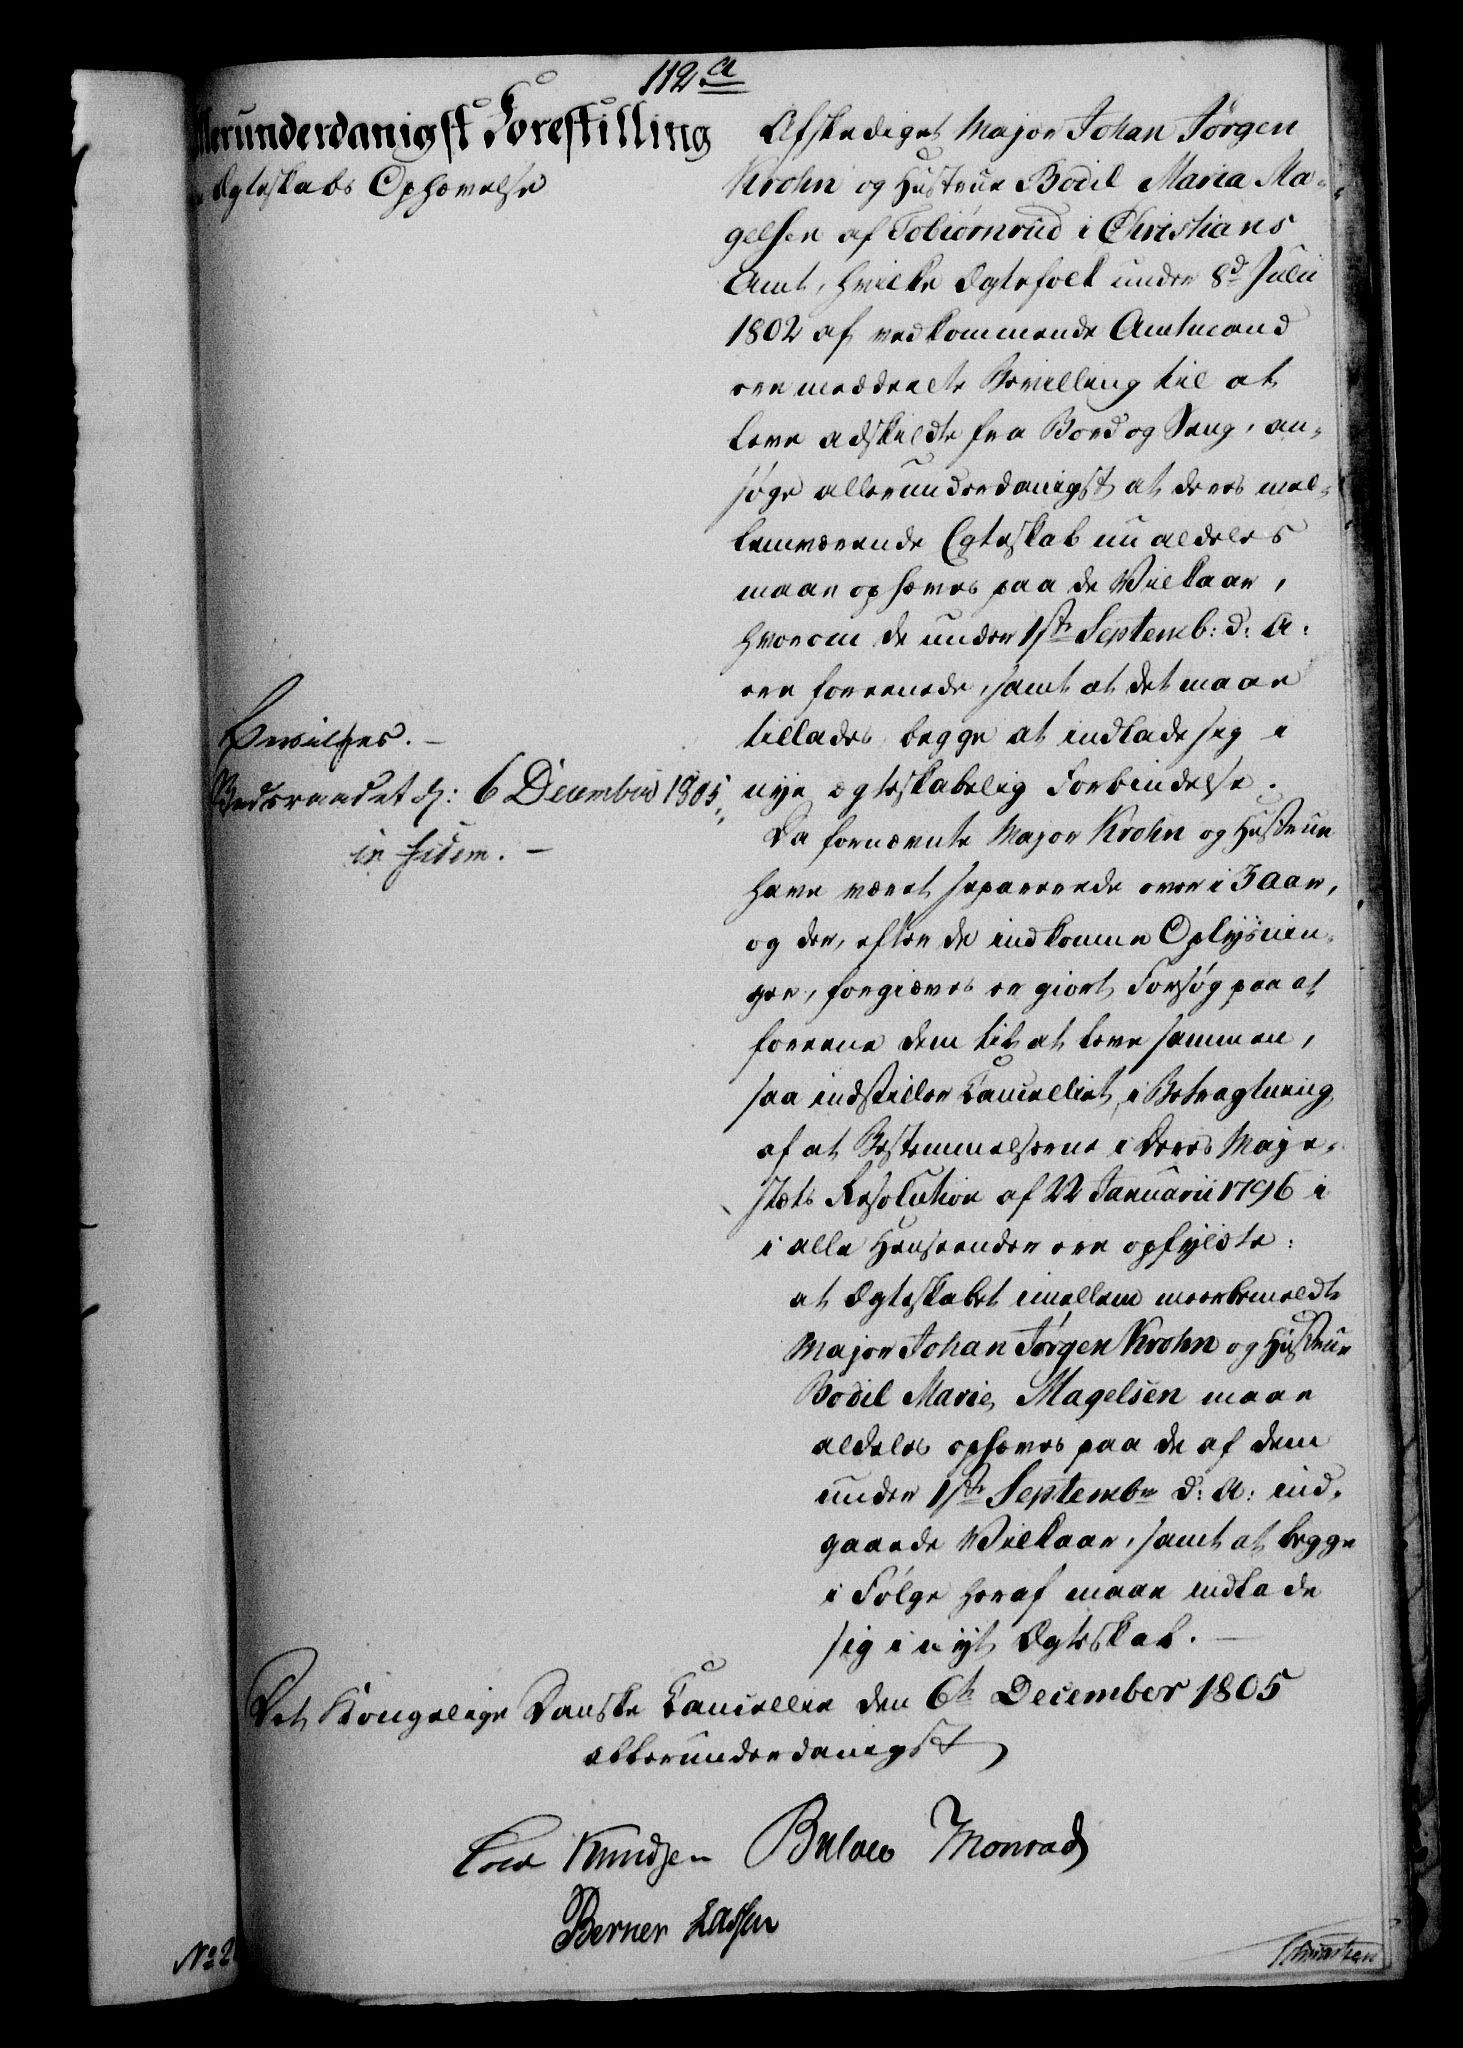 112.a
Allerunderdanigst Forestilling
Ægteskabs Ophævelse
Afskediget Major Johan Jørgen
Krohn og Hustrue Bodil Maria Ma-
gelsen af Tobiørnrud i Christians
Amt, hvilke Ægtefolk under 8d Julii
1802 af vedkommende Amtmand
ere meddeelte Bevilling til at
leve adskildte fra Bord og Seng, an-
søge allerunderdanigst at deres mel-
lemværende Egteskab nu aldeles
maae ophæves paa de Vilkaar,
hvorom de under 1ste Septemb: d: A:
ere foreenede, samt at det maae
tillades begge at indlade sig i
nye ægteskabelig Forbindelse.
Bevilges. -
Fredensraadet d: 6 December 1805,
in fidem. -
Da fornævnte Major Krohn og Hustrue
have været separerede over i 3 Aar,
og der, efter de indkomne Oplysnin-
ger, forgiæves er giort Forsøg paa at
foreene dem til at leve sammen,
saa indstiller Cancelliet, i Betragtning
af at Bestemmelserne i Deres Maje-
stæts Resolution af 22 Januarii 1796 i
i alle Henseender ere opfyldte:
at Ægteskabet imellem meerbemeldte
Major Johan Jørgen Krohn og Hustrue
Bodil Marie Magelsen maae
aldeles ophæves paa de af dem
under 1ste Septembr d: A: ind-
gaaede Vilkaar, samt at begge
i Følge heraf maae indlade
sig i nyt Ægteskab. -
Det Kongelige Danske Cancellie den 6te December 1805
allerunderdanigst
Knudsen Bulow Monrad
Berner Lassen
No 2